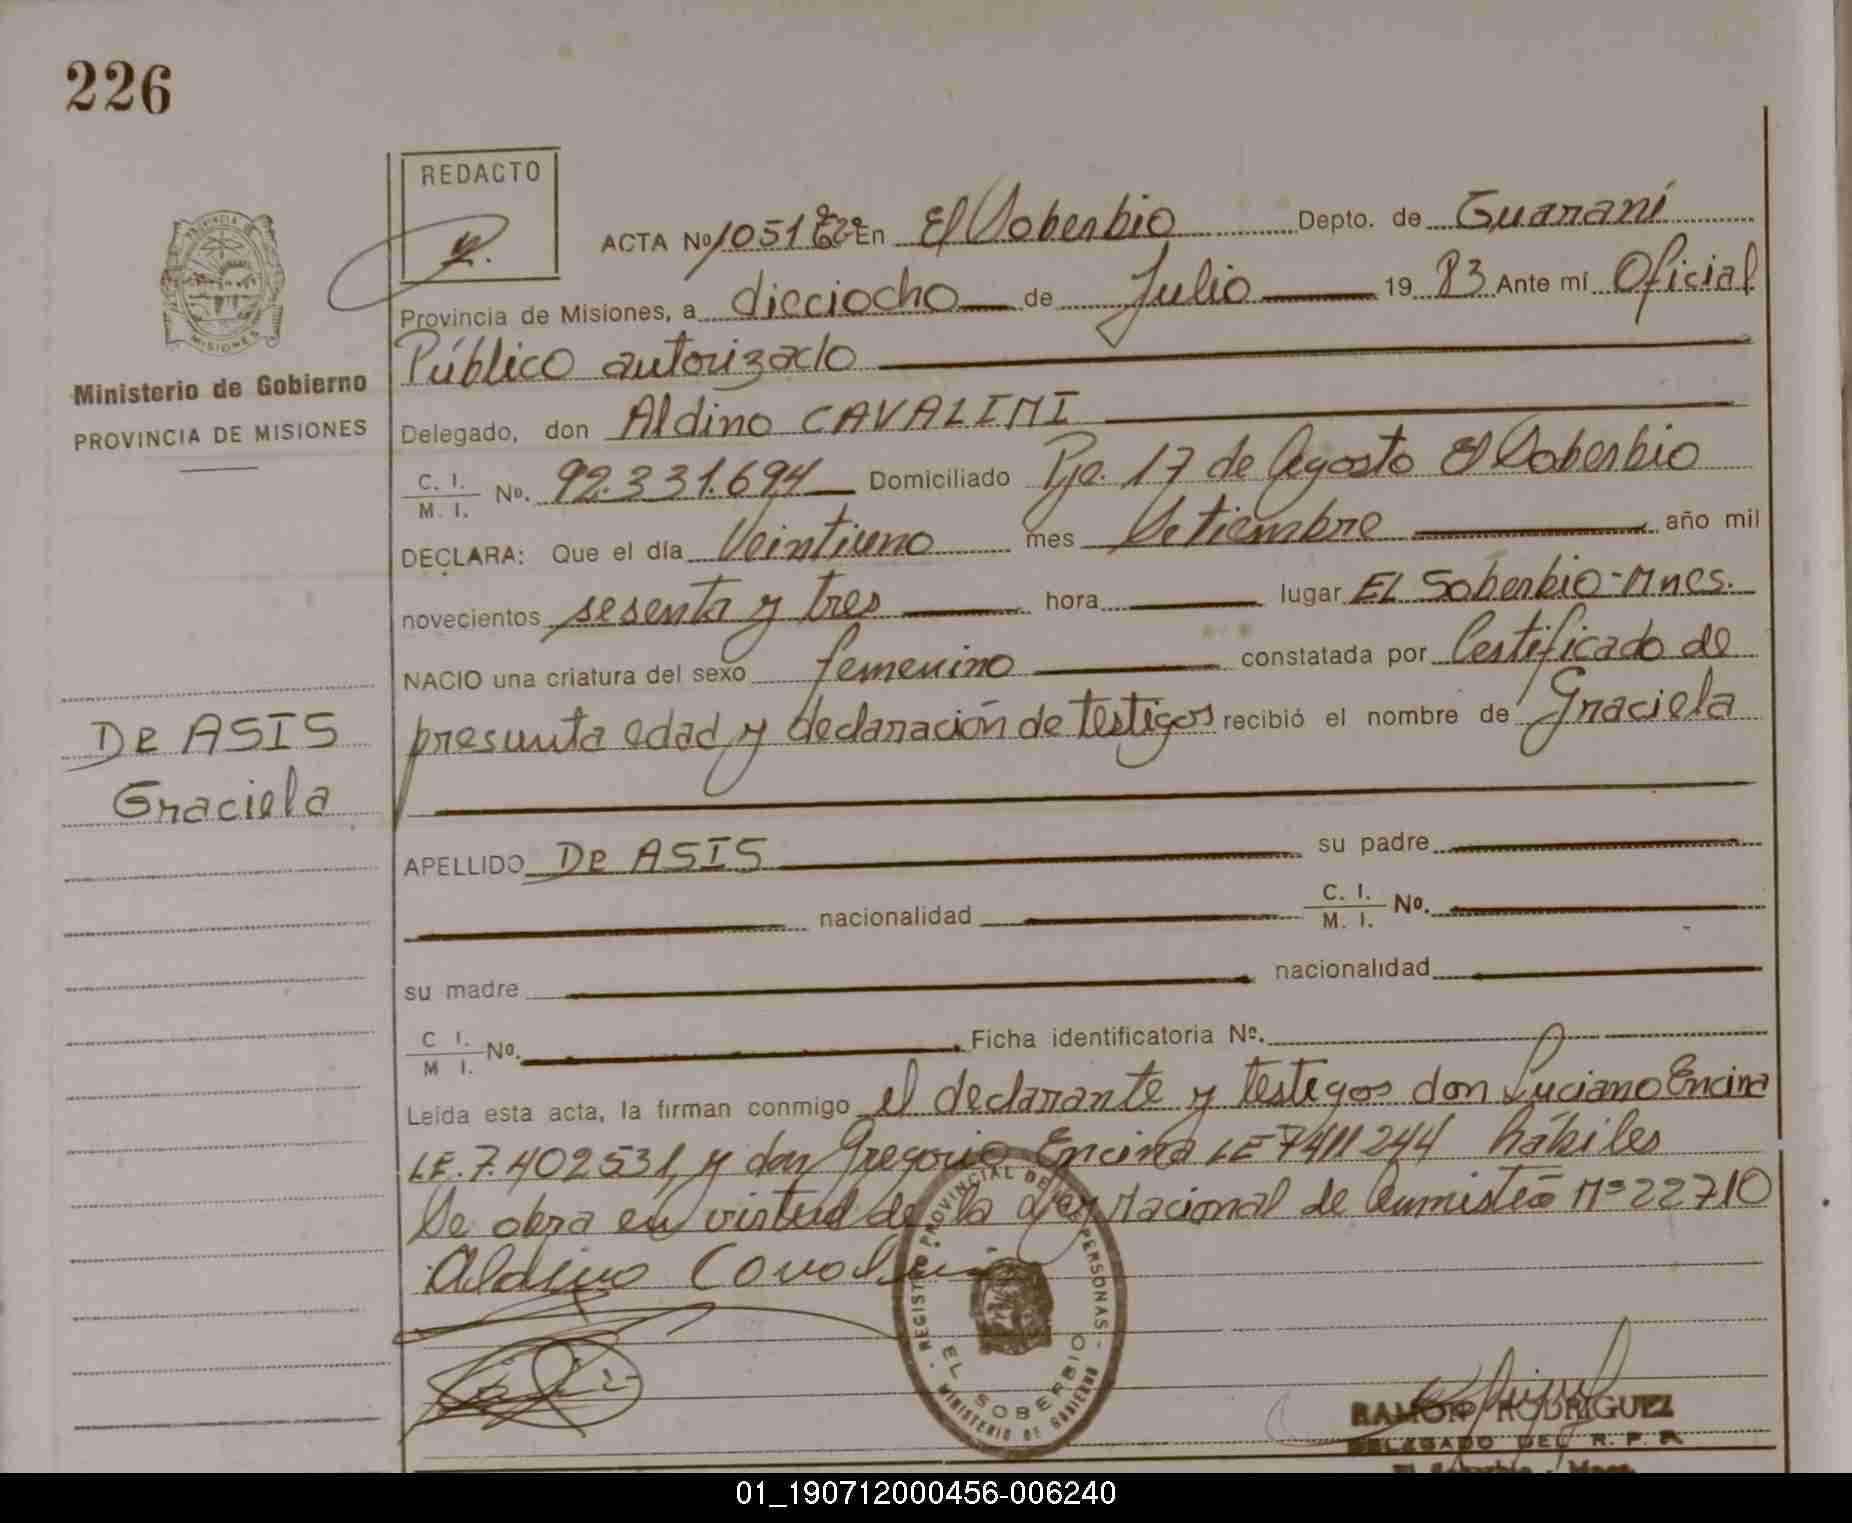 226
REDACTO
ACTA Nº 1051 En El Soberbio Depto. de Guaraní
Provincia de Misiones, a dieciocho de Julio 19 83 Ante mí Oficial
Público autorizado
Ministerio de Gobierno
PROVINCIA DE MISIONES
Delegado, don Aldino CAVALINI
C. I.
M. I. No. 92.331.694 Domiciliado Pje. 17 de Agosto El Soberbio
DECLARA: Que el día Veintiuno mes Setiembre año mil
novecientos sesenta y tres hora lugar EL Soberbio-Mnes.
NACIO una criatura del sexo femenino constatada por Certificado de
presunta edad y declaración de testigos recibió el nombre de Graciela
De ASIS
Graciela
APELLIDO De ASIS su padre
nacionalidad C. I.
M. I. Nº.
su madre nacionalidad
C I.
M I. Nº. Ficha identificatoria Nº.
Leída esta acta, la firman conmigo el declarante y testigos don Luciano Encina
LE.7.402531, y don Gregorio Encina LE 7411244 hábiles
Se obra en virtud de la Ley Nacional de Amnistía Nº 22710
Aldino Cavalini
REGISTRO PROVINCIAL DE LAS PERSONAS
EL SOBERBIO
MINISTERIO DE GOBIERNO
PROVINCIA
MISIONES
RAMON RODRIGUEZ
DELEGADO DEL R. P. P.
El Soberbio - Mnes.
01_190712000456-006240